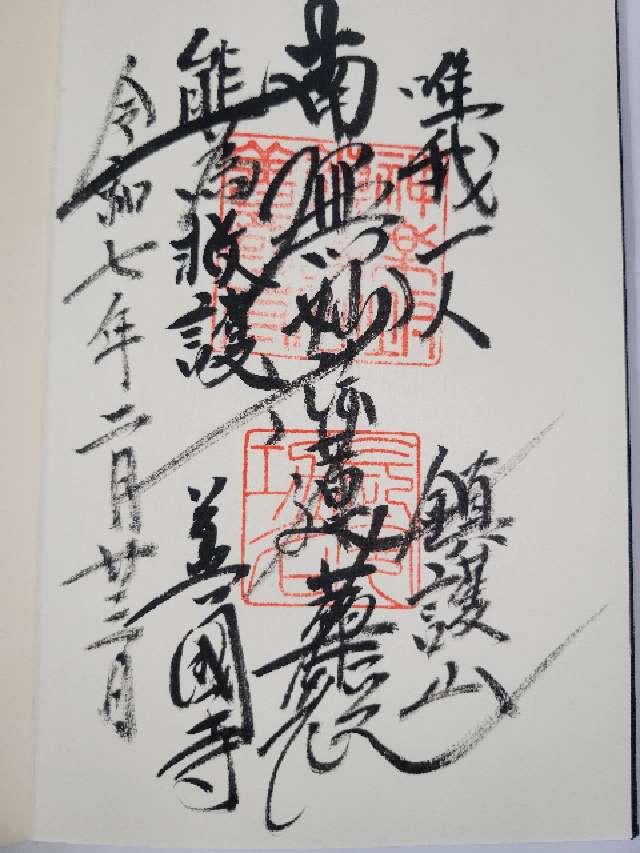 唯我一人
鎮護山
南無妙法蓮華經
能為救護
善國寺
令和七年二月廿三日